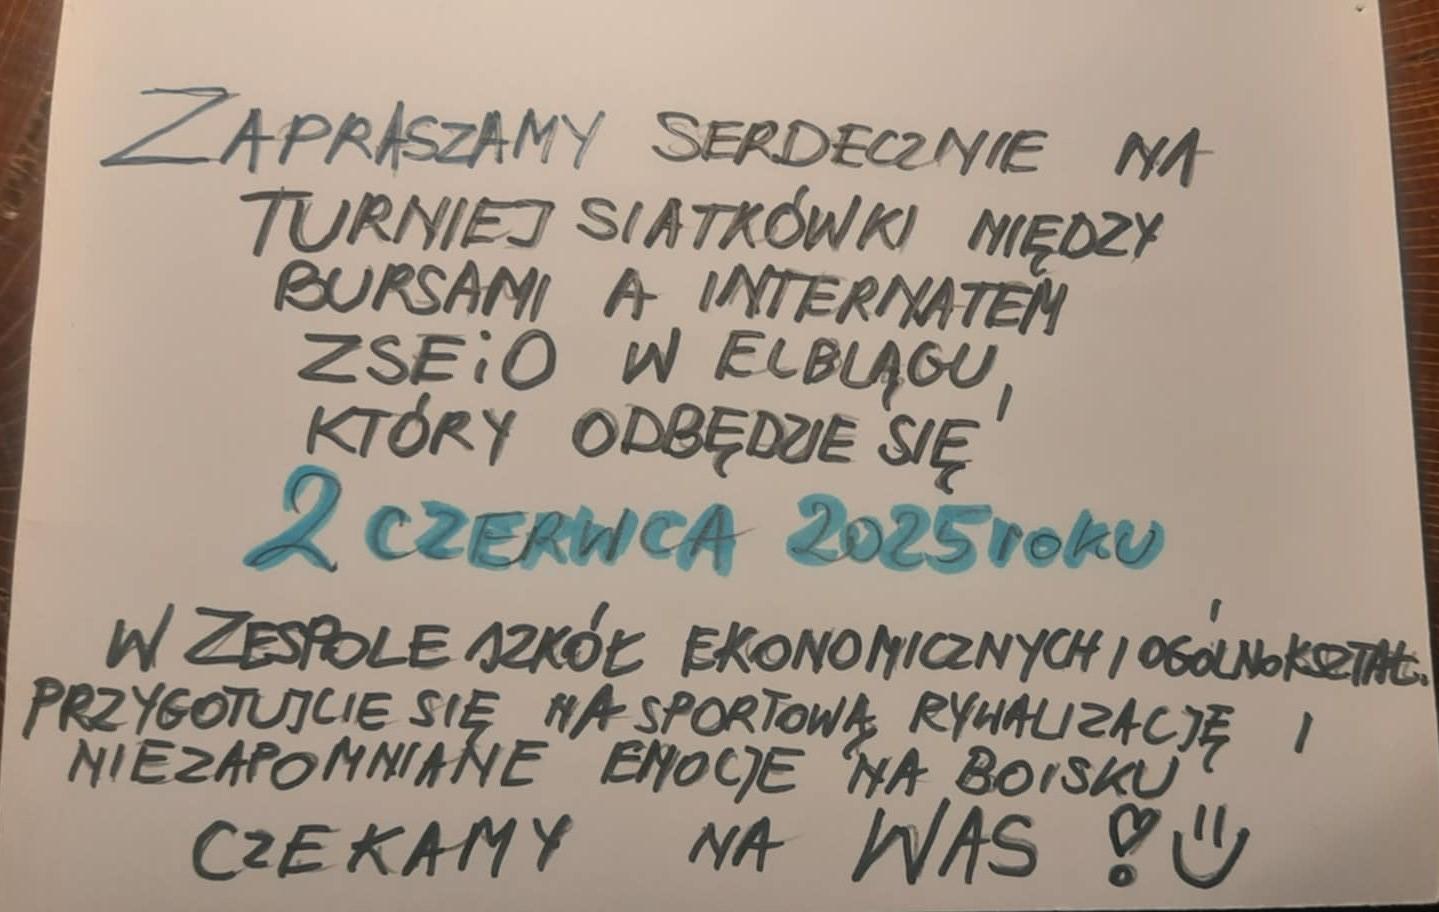 ZAPRASZAMY SERDECZNIE NA
TURNIEJ SIATKÓWKI MIĘDZY
BURSAMI A INTERNATEM
ZSEiO W ELBLĄGU,
KTÓRY ODBĘDZIE SIĘ
2 CZERWCA 2025 roku
W ZESPOLE SZKÓŁ EKONOMICZNYCH I OGÓLNOKSZTAŁ.
PRZYGOTUJCIE SIĘ NA SPORTOWĄ RYWALIZACJĘ I
NIEZAPOMNIANE EMOCJE NA BOISKU
CZEKAMY NA WAS !